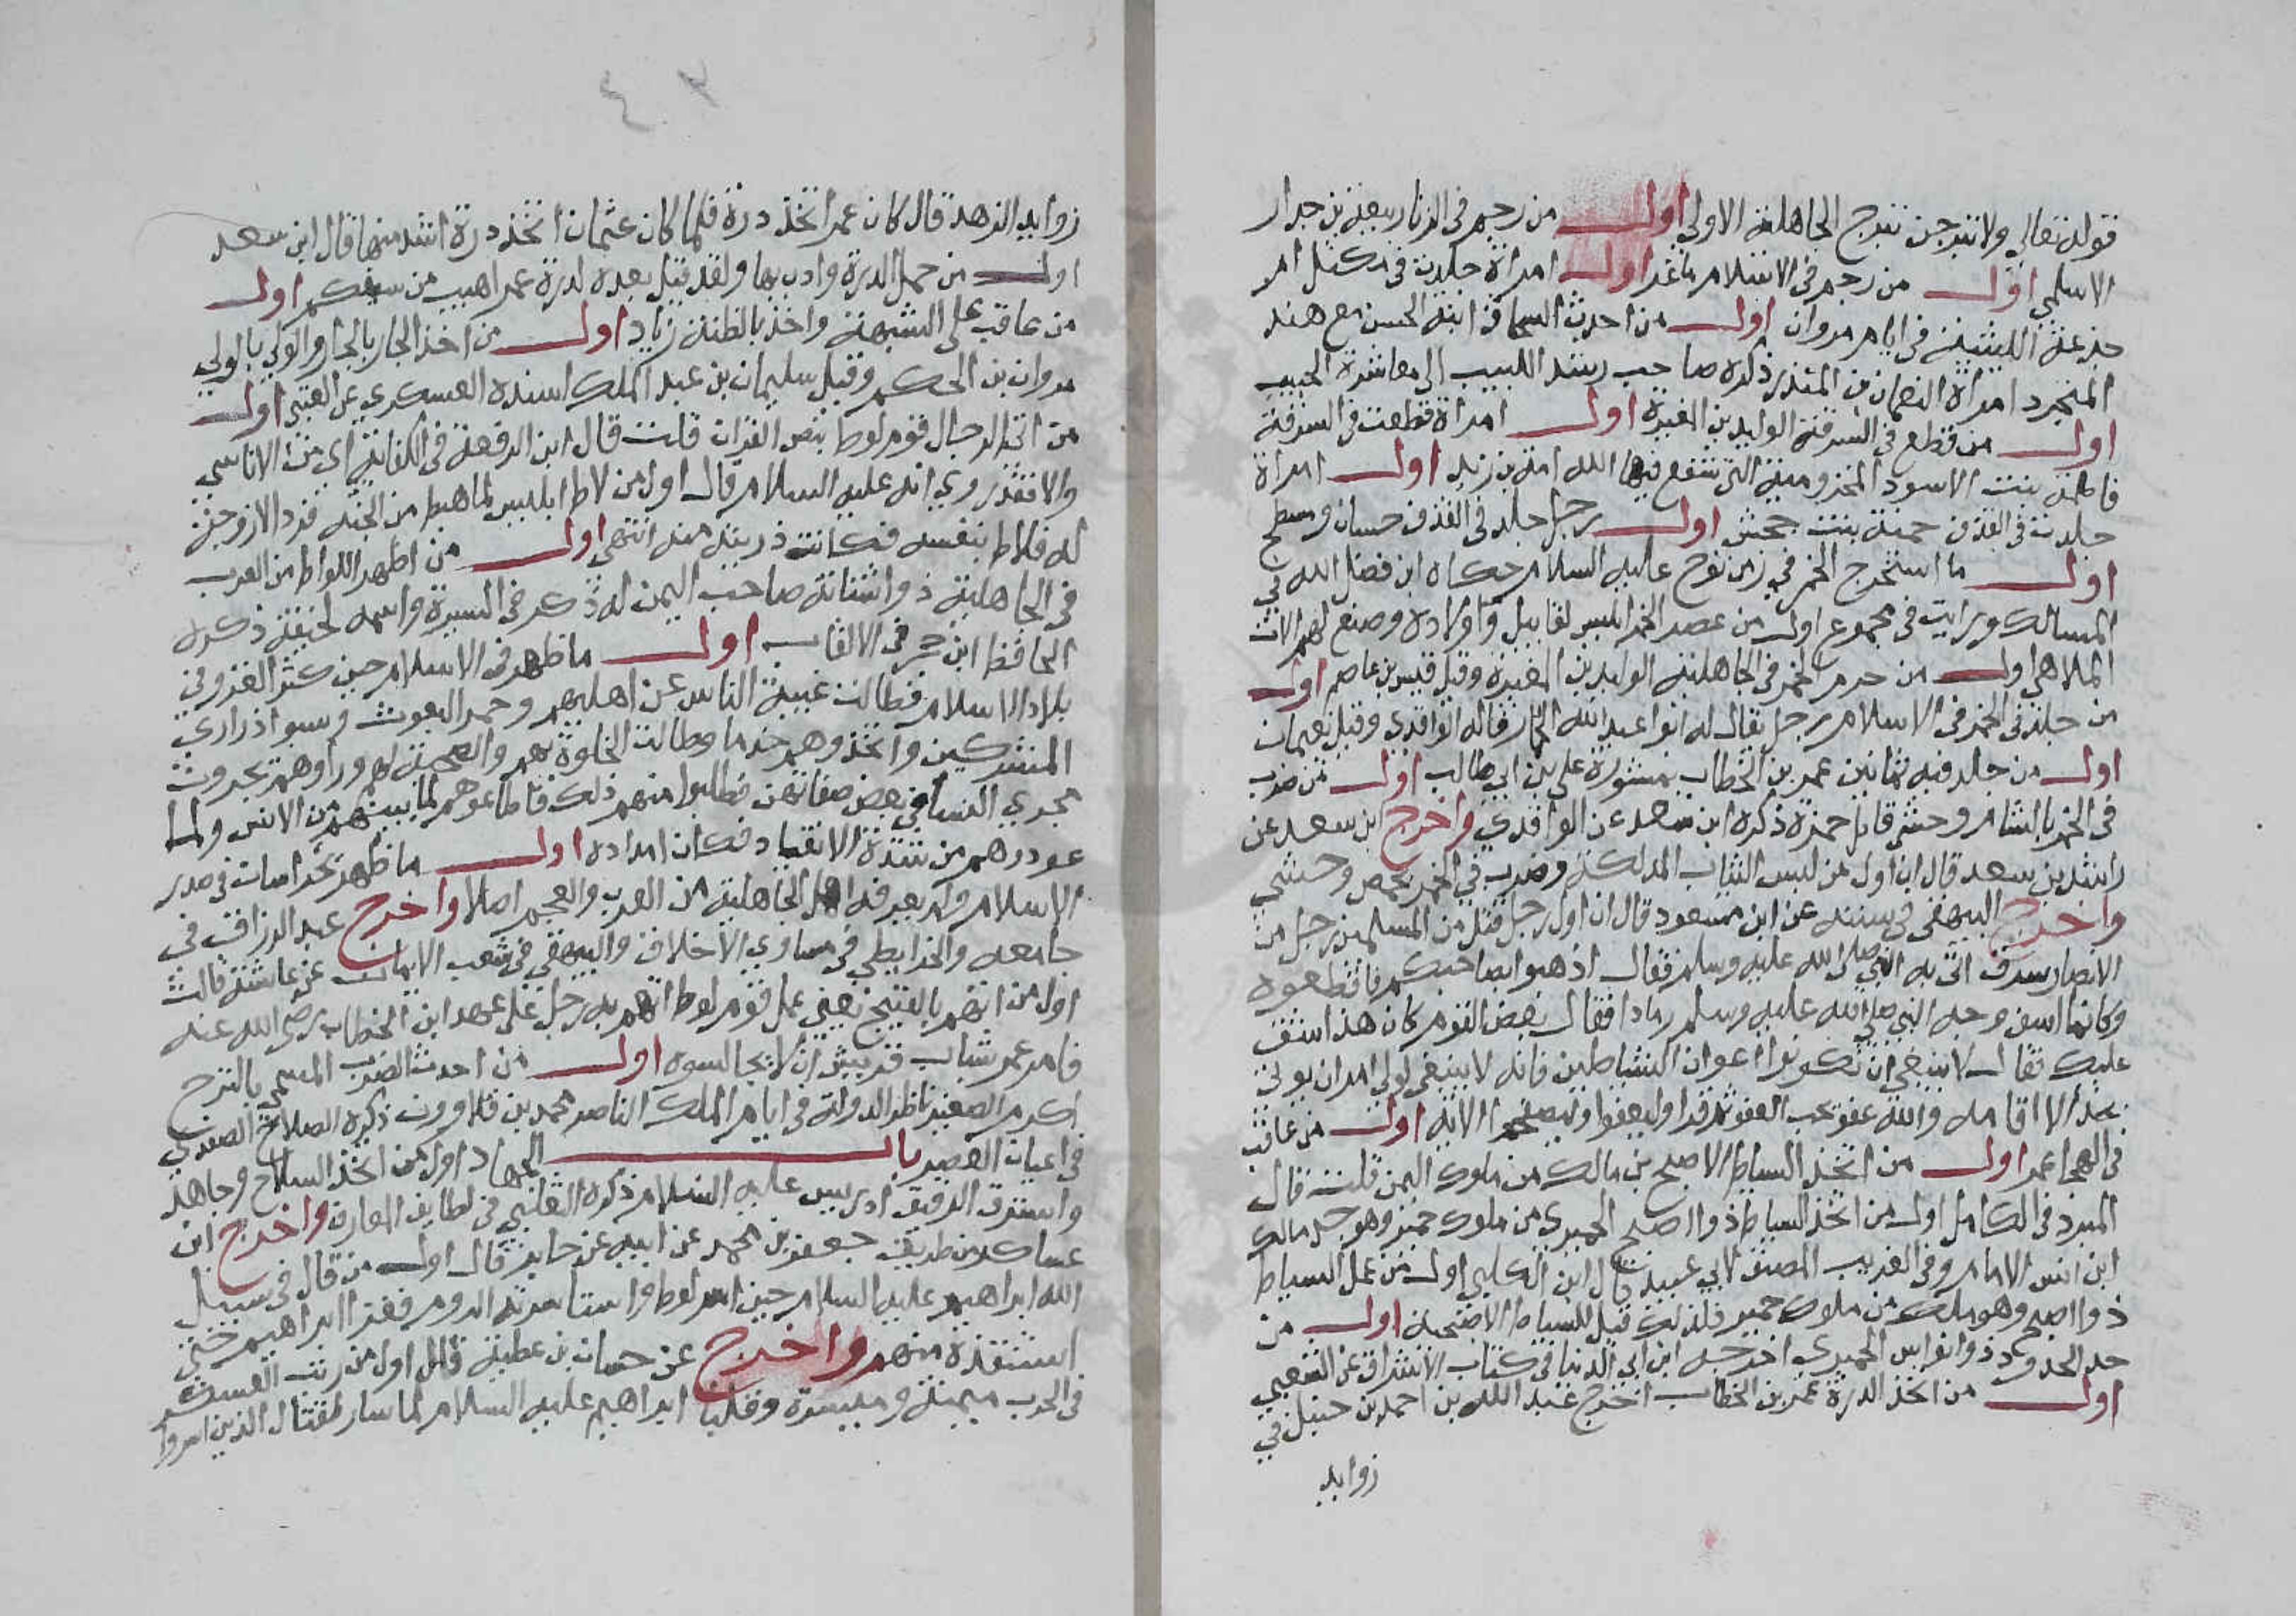 قوله تعالي ولا تبرجن تبرج الجاهلية الاولي اول من رجم في الزنا ربيعة بن جدار
الاسلمي اول من رجم في الاسلام ماعز اول امراة جلدت في مكثل ام
جذعة الليثية في ايام مروان اول من احدث السحاق ابنة الحسن مع هند
المتجرد امراة النعمان بن المنذر ذكره صاحب رشد اللبيب الي معاشرة الحبيب
اول من قطع في السرقة الوليد بن المغيرة اول امراة قطعت في السرقة
فاطمة بنت الاسود المخزومية التي شفع فيها اسامة بن زيد اول امراة
جلدت في القذف حمنة بنت جحش اول رجل جلد في القذف حسان ومسطح
اول ما استخرج الخمر في زمن نوح عليه السلام حكاه ابن فضل الله في
المسالك ورايت في مجموع اول من عصر الخمر ابليس لقابيل واولاده وصنع لهم الات
الملاهي اول من حرم الخمر في الجاهلية الوليد بن المغيرة وقيل قيس بن عاصم اول
من جلد في الخمر في الاسلام رجل يقال له ابو عبد الله الحمار قاله الواقدي وقيل نعيمان
اول من جلد فيه ثمانين عمر بن الخطاب بمشورة علي بن ابي طالب اول من ضرب
في الخمر بالشام وحشي قاتل حمزة ذكره ابن سعد عن الواقدي واخرج ابن سعد عن
راشد بن سعد قال ان اول من لبس الثياب المدلكة وضرب في الخمر بحمص وحشي
واخرج البيهقي في سننه عن ابن مسعود قال ان اول رجل قتل من المسلمين رجل من
الانصار سرق اتي به النبي صلي الله عليه وسلم فقال اذهبوا بصاحبكم فاقطعوه
وكانما اسف وجه النبي صلي الله عليه وسلم رمادا فقال بعض القوم كان هذا شق
عليك فقال لا ينبغي ان تكونوا اعوان الشياطين فانه لا ينبغي لولي امر ان يوتي
بحد الا اقامه والله عفو يحب العفو ثم قرا وليعفوا وليصفحوا الاية اول من عاقب
في الهجا عمر اول من اتخذ السياط الاصبح بن مالك من ملوك اليمن قلت قال
المبرد في الكامل اول من اتخذ السياط ذو اصبح الحميري من ملوك حمير وهو جد مالك
ابن انس الامام وفي الغريب المصنف لابي عبيد قال ابن الكلبي اول من عمل السياط
ذو اصبح وهو ملك من ملوك حمير فلذلك قيل للسياط الاصبحية اول من
حد الحدود ذو انواس الحميري اخرجه ابن ابي الدنيا في كتاب الاشراف عن الشعبي
اول من اتخذ الدرة عمر بن الخطاب اخرج عبد الله بن احمد بن حنبل في
زوايد
٤٢
زوايد الزهد قال كان عمر اتخذ درة فلما كان عثمان اتخذ درة اشد منها قال ابن سعد
اول من حمل الدرة وادب بها ولقد قيل بعده لدرة عمر اهيب من سيفكم اول
من عاقب علي الشبهة واخذ بالظنة زياد اول من اخذ الجار بالجار والولي بالولي
مروان بن الحكم وقيل سليمان بن عبد الملك اسنده العسكري عن العتبي اول
من اتي الرجال قوم لوط بنص القران قلت قال ابن الرفعة في الكفاية اي من الاناسي
والا فقد روي انه عليه السلام قال اول من لاط ابليس لما هبط من الجنة فردا لا زوجة
له فلاط بنفسه فكانت ذريته منه انتهي اول من اظهر اللواط من العرب
في الجاهلية ذو اشناتة صاحب اليمن له ذكر في السيرة واسمه لخيعة ذكره
الحافظ ابن حجر في الالقاب اول ما ظهر في الاسلام حين كثر الغزو في
بلاد الاسلام فطالت غيبة الناس عن اهليهم وجمر البعوث وسبوا ذراري
المشركين واتخذوهم خدما وطالت الخلوة بهم والصحبة لهم وراوهم يجرون
مجري النساء في بعض صفاتهن فطلبوا منهم ذلك فاطاعوهم لما بينهم من الانس ولما
عودوهم من شدة الانقياد فكان امراده اول ما ظهر بخراسان في صدر
الاسلام ولم يعرفه اهل الجاهلية من العرب والعجم اصلا واخرج عبد الرزاق في
جامعه والخرايطي في مساوي الاخلاق والبيهقي في شعب الايمان عن عايشة قالت
اول من اتهم بالقبيح يعني عمل قوم لوط اتهم به رجل علي عهد ابن الخطاب رضي الله عنه
فامر عمر شباب قريش ان لا يجالسوه اول من احدث الضرب المسمي بالترح
اكرم الصغير ناظر الدولة في ايام الملك الناصر محمد بن قلاوون ذكره الصلاح الصفدي
في اعيان العصر باب الجهاد اول من اتخذ السلاح وجاهد
واسترق الرقيق ادريس عليه السلام ذكره الثعالبي في لطايف المعارف واخرج ابن
عساكر من طريق جعفر بن محمد عن ابيه عن جابر قال اول من قال في سبيل
الله ابراهيم عليه السلام حين اسر لوط واستاسرته الروم فغزا ابراهيم حتي
استنقذه منهم واخرج عن حسان بن عطية قال اول من رتب العسكر
في الحرب ميمنة وميسرة وقلبا ابراهيم عليه السلام لما سار لقتال الذين اسروا